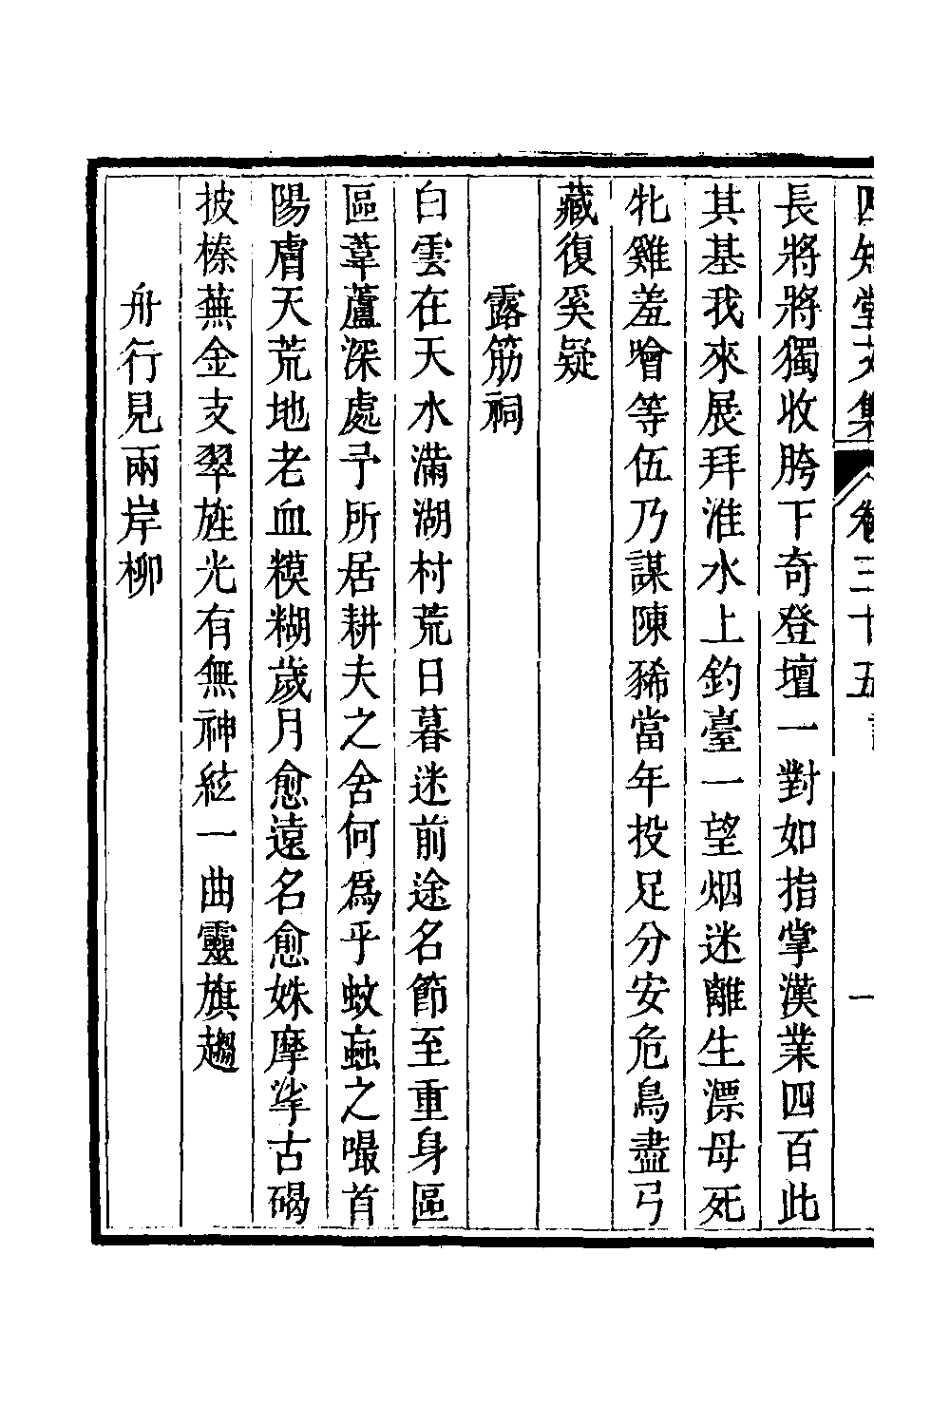 四知堂文集 卷三十五 一
長將將獨收胯下奇登壇一對如指掌漢業四百此
其基我來展拜淮水上釣臺一望烟迷離生漂母死
牝雞羞噲等伍乃謀陳豨當年投足分安危鳥盡弓
藏復奚疑
露筋祠
白雲在天水滿湖村荒日暮迷前途名節至重身區
區葦蘆深處予所居耕夫之舍何爲乎蚊蝱之嘬首
陽膚天荒地老血糢糊歲月愈遠名愈姝摩挲古碣
披榛蕪金支翠旌光有無神絃一曲靈旗趨
舟行見兩岸柳